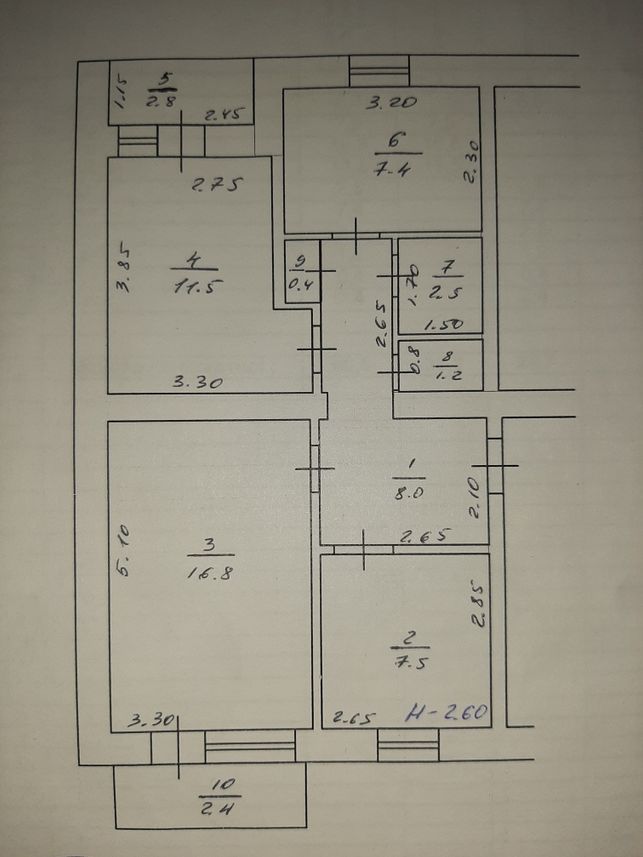 1.15
5
2.8
2.45
3.20
6
7.4
2.30
2.75
3.85
4
11.5
3.30
9
0.4
2.65
1.70
7
2.5
1.50
0.8
8
1.2
1
8.0
2.10
2.65
5.10
3
16.8
3.30
2
7.5
2.85
2.65
H-2.60
10
2.4